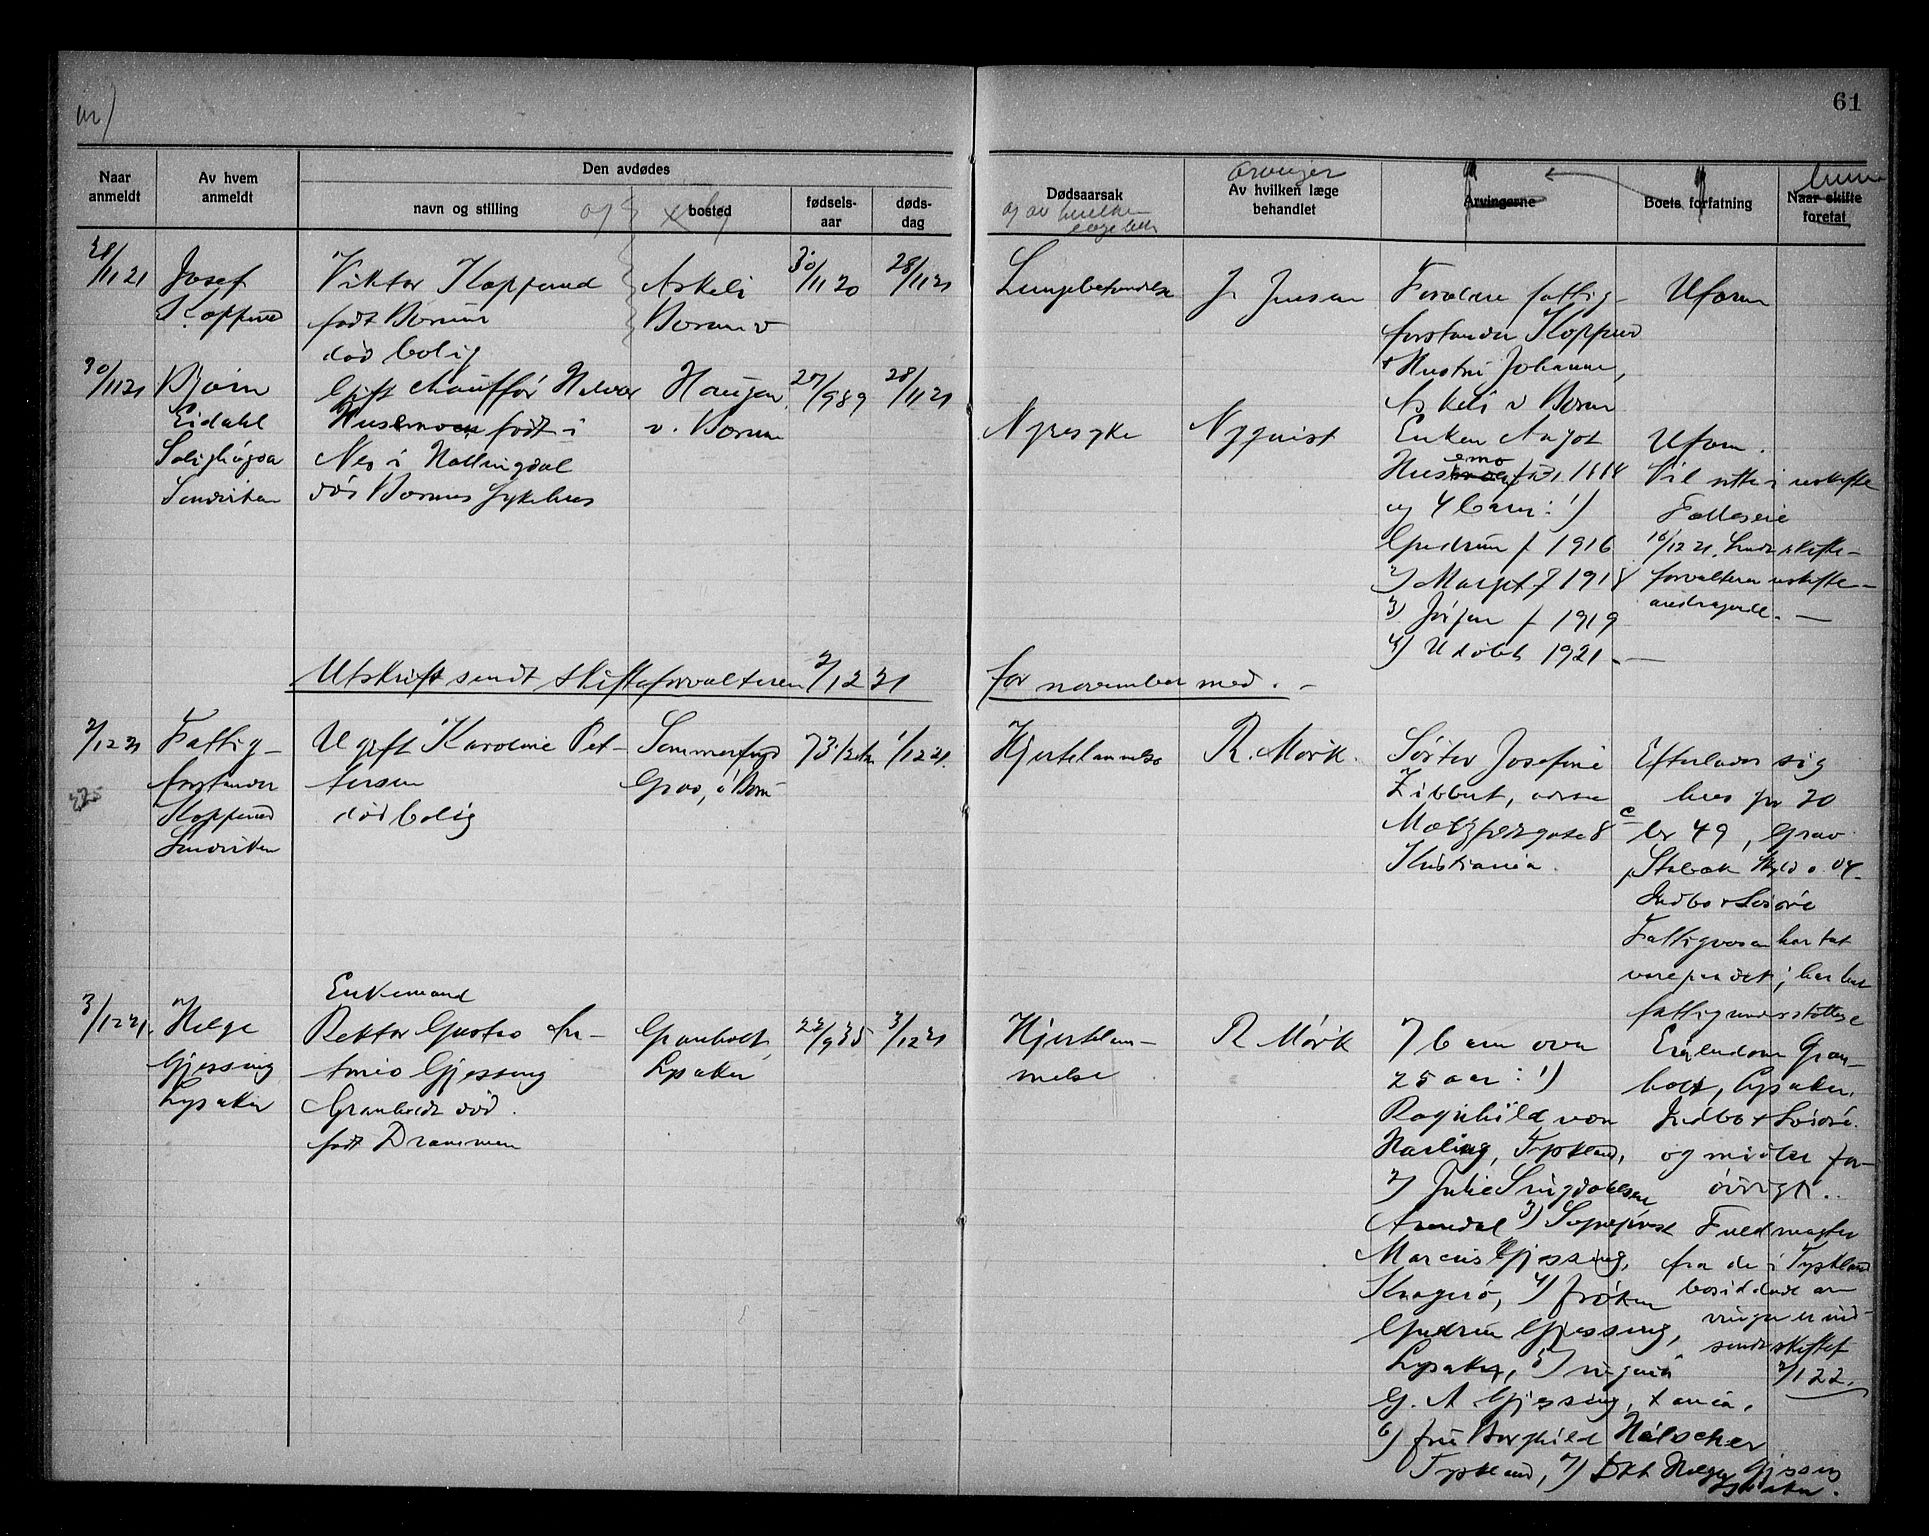 61
Naar
anmeldt
Av hvem
anmeldt
Den avdødes
navn og stilling
bosted
fødsels-
aar
døds-
dag
Dødsaarsak
og av hvilken
læge beh
Arvinger
Av hvilken læge
behandlet
Arvingerne
Boets forfatning
Naar skifte
foretat
28/11 21
Josef
Kopperud
Viktor Kopperud
født Bærum
død bolig
Askeli
Bærum
30/11 20
28/11 21
Lungebetændelse
J. Jensen
Forældre fattig-
forstander Kopperud
+ Hustru Johanne,
Askeli v Bærum
Uform
30/11 21
Bjørn
Eidahl
Solighøgda
Sandviken
Gift chauffør Halvor
Husemoen født i
Nes i Hallingdal
død Bærums Sykehus
Haugen
v. Bærum
27/9 89
28/11 21
Nyresyke
Nyquist
Enken Angot
og 4 barn: 1)
Gudrun f 1916
2) Margit f 1918
3) Jørgen f 1919
4) 1921.
Uform.
Vil sitte i uskifte
Fælleseie
16/12 21. Sendt skifte-
forvalteren uskifte-
andragende. —
Utskrift sendt skifteforvalteren 2/12 21
for november med. —
2/12 21
Fattig-
forstander
Kopperud
Sandviken
Ugift Karoline Pet-
tersen
død bolig
Grav, i Bærum
73 1/2
1/12 21.
Hjertelammelse
R. Mørk.
Søster Josefine
Zibbert,
8
Kristiania.
Efterlader sig
hus gr 20
br 49, Grav
Stabæk Skyld 0.04
Indbo + Løsøre
Fattigvæsen har tat
vare paa det; har hat
fattigunderstøttelse
3/12 21.
Helge
Gjessing
Lysaker
Enkemand
Rektor Gustav An-
tonio Gjessing
Granholt død.
født Drammen
Granholt,
Lysaker
22/9 35
3/12 21
Hjertelam-
melse
R Mørk
7 barn over
25 aar: 1)
Ragnhild von
Harling, Tyskland,
2) Julie Smigdahlsen
Arendal 3) Sogneprest
Marcus Gjessing,
Kragerø, 4) frøken
Gudrun Gjessing,
Lysaker, 5) ingeniør
G. A. Gjessing,
6) fru Borghild Hølscher
Tyskland, 7) Dkt Helge Gjessing
Lysaker.
Eiendom Gran-
holt, Lysaker.
Indbo + Løsøre.
og midler for-
øvrigt.
Fuldmagter
fra de i Tyskland
bosiddende ar-
vinger er ind-
sendt skiftet
2/1 22.